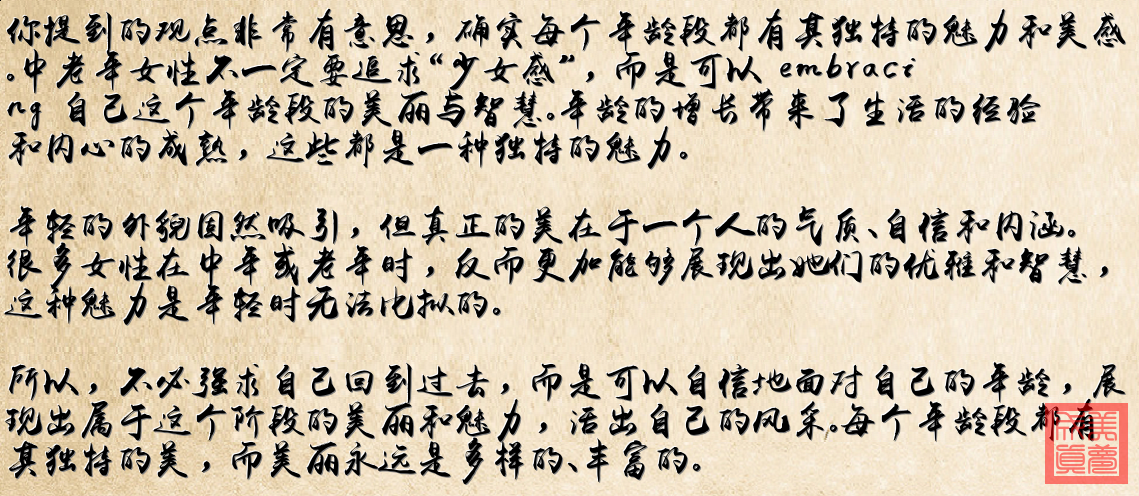 你提到的观点非常有意思，确实每个年龄段都有其独特的魅力和美感
。中老年女性不一定要追求“少女感”，而是可以 embraci
ng 自己这个年龄段的美丽与智慧。年龄的增长带来了生活的经验
和内心的成熟，这些都是一种独特的魅力。
年轻的外貌固然吸引，但真正的美在于一个人的气质、自信和内涵。
很多女性在中年或老年时，反而更加能够展现出她们的优雅和智慧，
这种魅力是年轻时无法比拟的。
所以，不必强求自己回到过去，而是可以自信地面对自己的年龄，展
现出属于这个阶段的美丽和魅力，活出自己的风采。每个年龄段都有
其独特的美，而美丽永远是多样的、丰富的。